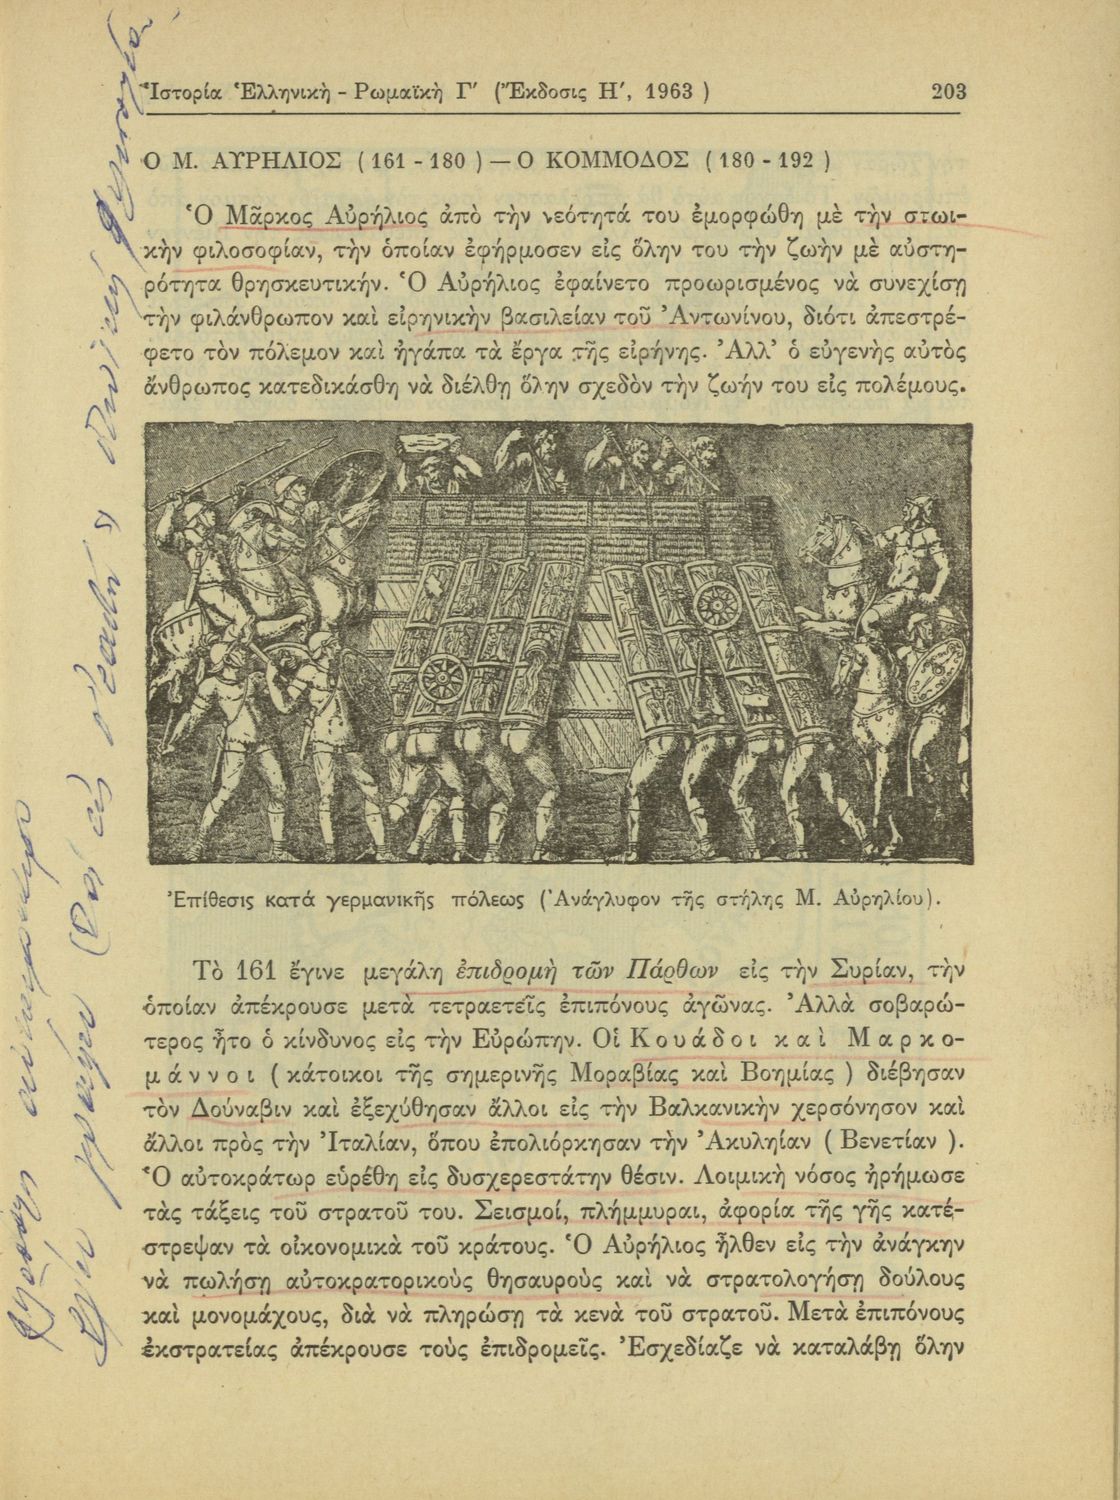 Ἱστορία Ἑλληνικὴ - Ρωμαϊκὴ Γ′ (Ἔκδοσις Η′, 1963 ) 203
Ο Μ. ΑΥΡΗΛΙΟΣ ( 161 - 180 ) — Ο ΚΟΜΜΟΔΟΣ ( 180 - 192 )
Ὁ Μᾶρκος Αὐρήλιος ἀπὸ τὴν νεότητά του ἐμορφώθη μὲ τὴν στωι-
κὴν φιλοσοφίαν, τὴν ὁποίαν ἐφήρμοσεν εἰς ὅλην του τὴν ζωὴν μὲ αὐστη-
ρότητα θρησκευτικήν. Ὁ Αὐρήλιος ἐφαίνετο προωρισμένος νὰ συνεχίσῃ
τὴν φιλάνθρωπον καὶ εἰρηνικὴν βασιλείαν τοῦ Ἀντωνίνου, διότι ἀπεστρέ-
φετο τὸν πόλεμον καὶ ἠγάπα τὰ ἔργα τῆς εἰρήνης. Ἀλλ’ ὁ εὐγενὴς αὐτὸς
ἄνθρωπος κατεδικάσθη νὰ διέλθῃ ὅλην σχεδὸν τὴν ζωήν του εἰς πολέμους.
Ἐπίθεσις κατά γερμανικῆς πόλεως (Ἀνάγλυφον τῆς στήλης Μ. Αὐρηλίου).
Τὸ 161 ἔγινε μεγάλη ἐπιδρομὴ τῶν Πάρθων εἰς τὴν Συρίαν, τὴν
ὁποίαν ἀπέκρουσε μετὰ τετραετεῖς ἐπιπόνους ἀγῶνας. Ἀλλὰ σοβαρώ-
τερος ἦτο ὁ κίνδυνος εἰς τὴν Εὐρώπην. Οἱ Κουάδοι καὶ Μαρκο-
μάννοι ( κάτοικοι τῆς σημερινῆς Μοραβίας καὶ Βοημίας ) διέβησαν
τὸν Δούναβιν καὶ ἐξεχύθησαν ἄλλοι εἰς τὴν Βαλκανικὴν χερσόνησον καὶ
ἄλλοι πρὸς τὴν Ἰταλίαν, ὅπου ἐπολιόρκησαν τὴν Ἀκυληίαν ( Βενετίαν ).
Ὁ αὐτοκράτωρ εὑρέθη εἰς δυσχερεστάτην θέσιν. Λοιμικὴ νόσος ἠρήμωσε
τὰς τάξεις τοῦ στρατοῦ του. Σεισμοί, πλήμμυραι, ἀφορία τῆς γῆς κατέ-
στρεψαν τὰ οἰκονομικὰ τοῦ κράτους. Ὁ Αὐρήλιος ἦλθεν εἰς τὴν ἀνάγκην
νὰ πωλήσῃ αὐτοκρατορικοὺς θησαυροὺς καὶ νὰ στρατολογήσῃ δούλους
καὶ μονομάχους, διὰ νὰ πληρώσῃ τὰ κενὰ τοῦ στρατοῦ. Μετὰ ἐπιπόνους
ἐκστρατείας ἀπέκρουσε τοὺς ἐπιδρομεῖς. Ἐσχεδίαζε νὰ καταλάβῃ ὅλην